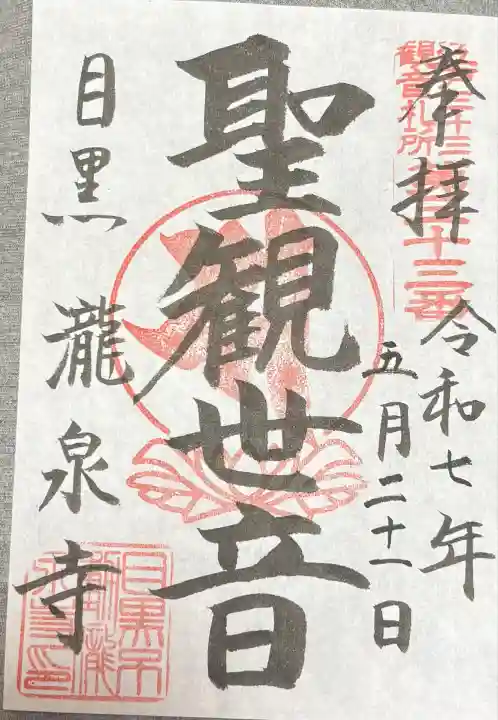 奉拝
令和七年
五月二十一日
聖観世音
目黒 瀧泉寺
江戸三十三
観音札所
第三十三番